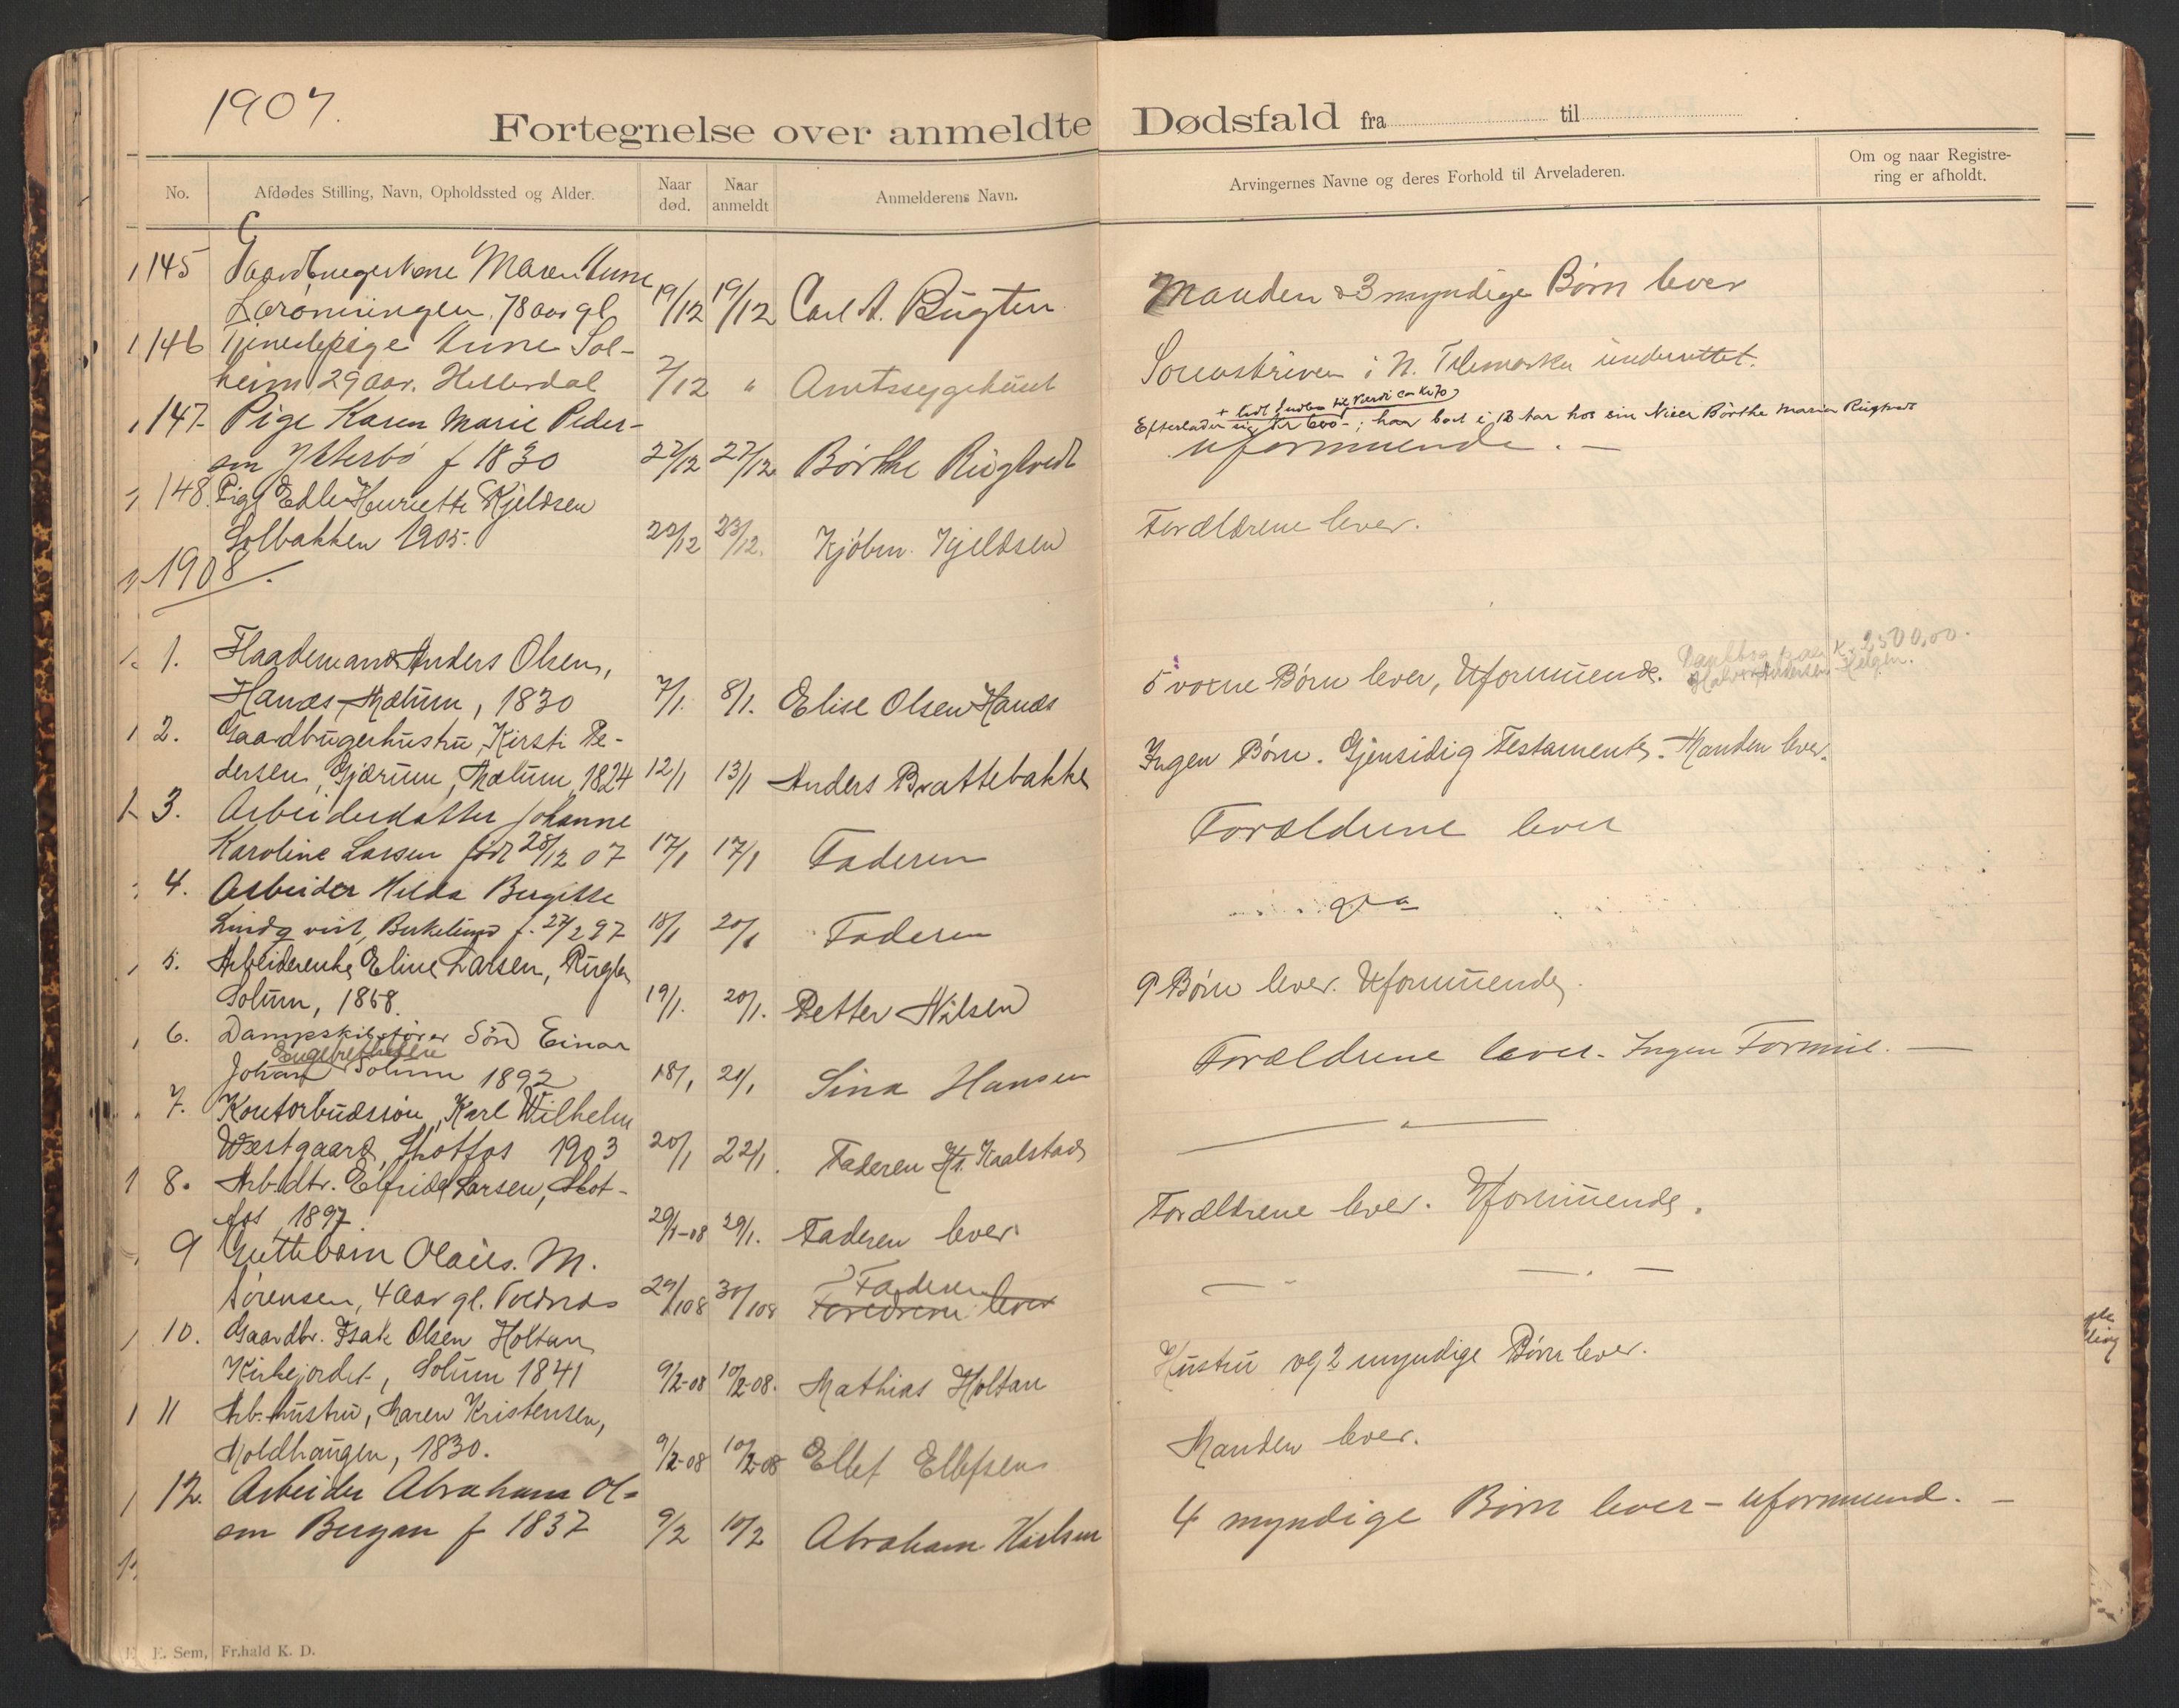 1907.
Fortegnelse over anmeldte Dødsfald fra til
No.
Afdødes Stilling, Navn, Opholdssted og Alder.
Naar død.
Naar anmeldt
Anmelderens Navn.
Arvingernes Navne og deres Forhold til Arveladeren.
Om og naar Registrering er afholdt.
145 Maren
78 aar gl 19/12 19/12 Carl A. Bugten Manden & 3 myndige Børn lever
146 Tjenestepige Anne Sol-
heim 29 aar. Hitterdal 2/12 " Amtssygehuset Sorenskriveren i N. Telemarken underrettet.
147 Pige Karen Marie Peder-
sen f 1830 27/12 27/12 Børthe Rugtvedt
Efterlader sig Kr 600-; har boet i 13 Aar hos sin Niece Børthe Maria Rugtvedt
uformuende. -
148. Pige Edle Henriette Kjeldsen
Solbakken 1905. 22/12 23/12. Kjøbm. Kjeldsen Forældrene lever.
1908.
1. Flaademand Anders Olsen,
Hanæs, Mælum, 1830 7/1. 8/1. Elise Olsen Hanæs 5 voxne Børn lever, Uformuende.
Kr 2500,00.
2. Gaardbrugerhustru, Kirsti Pe-
dersen, Gjærum, Mælum, 1824 12/1 13/1 Anders Brattebakke Ingen Børn. Gjensidig Testamente. Manden lever.
3. Arbeiderdatter Johanne
Karoline Larsen født 28/12 07 17/1 17/1 Faderen Forældrene lever
4. Arbeider Hilda Bergitte
Lindqvist, Birkelund f. 27/2 97 18/1 20/1 Faderen
5. Arbeiderenke Eline Larsen,
Solum, 1858. 19/1. 20/1. Petter Nilsen 9 Børn lever. Uformuende.
6. Dampskibsfører Søn Einar
Engebrethsen
Johan Solum 1892 18/1 21/1 Sina Hansen Forældrene lever. Ingen Formue. —
7. Kontorbudssøn, Karl Wilhelm
Westgaard, Skotfos 1903 20/1 22/1. Faderen Kaalstad — " —
8. Arb.dtr. Elfrida Larsen, Skot-
fos, 1897. 29/1-08 29/1. Faderen lever. Forældrene lever. Uformuende.
9 Guttebarn Olaus. M.
Sørensen, 4 Aar gl. 29/1 08 30/1 08 Faderen
— " — — . —
10. Gaardbr. Isak Olsen Holtan
Kirkejordet, Solum 1841 9/2-08 10/2-08. Mathias Holtan Hustru og 2 myndige Børn lever.
11 Arb. hustru, Maren Kristensen,
Moldhaugen, 1830. 9/2-08 10/2-08 Ellef Ellefsen Manden lever.
12. Arbeider Abraham Ol-
sen Bergan f 1837 9/2 10/2 Abraham Karlsen 4 myndige Børn lever - uformuend. -
E. Sem, Fr.hald K. D.